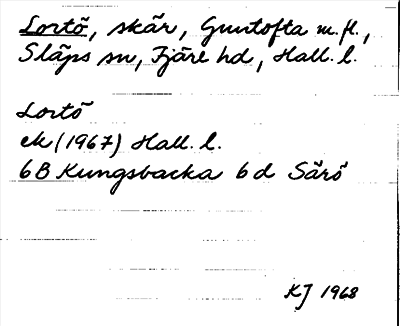 Lortö, skär, Guntofta m.fl.,
Släps sn, Fjäre hd, Hall. l.
Lortö
ek (1967) Hall. l.
6B Kungsbacka 6 d Särö
KJ 1968